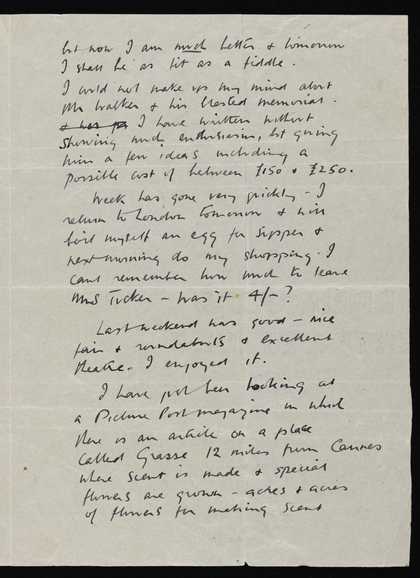 but now I am much better & tomorrow
I shall be as fit as a fiddle.
I could not make up my mind about
Mr Walker & his blasted memorial.
& was I have written without
showing much enthusiasm, but giving
him a few ideas including a
possible cost of between £150 & £250.
Week has gone very quickly – I
return to London tomorrow & will
boil myself an egg for supper &
next morning do my shopping. I
cant remember how much to leave
Mrs Tucker – was it 4/–?
Last weekend was good – nice
fair & roundabouts & excellent
theatre. I enjoyed it.
I have just been looking at
a Picture Post magazine in which
there is an article on a place
called Grasse 12 miles from Cannes
where scent is made & special
flowers are grown – acres & acres
of flowers for making scent